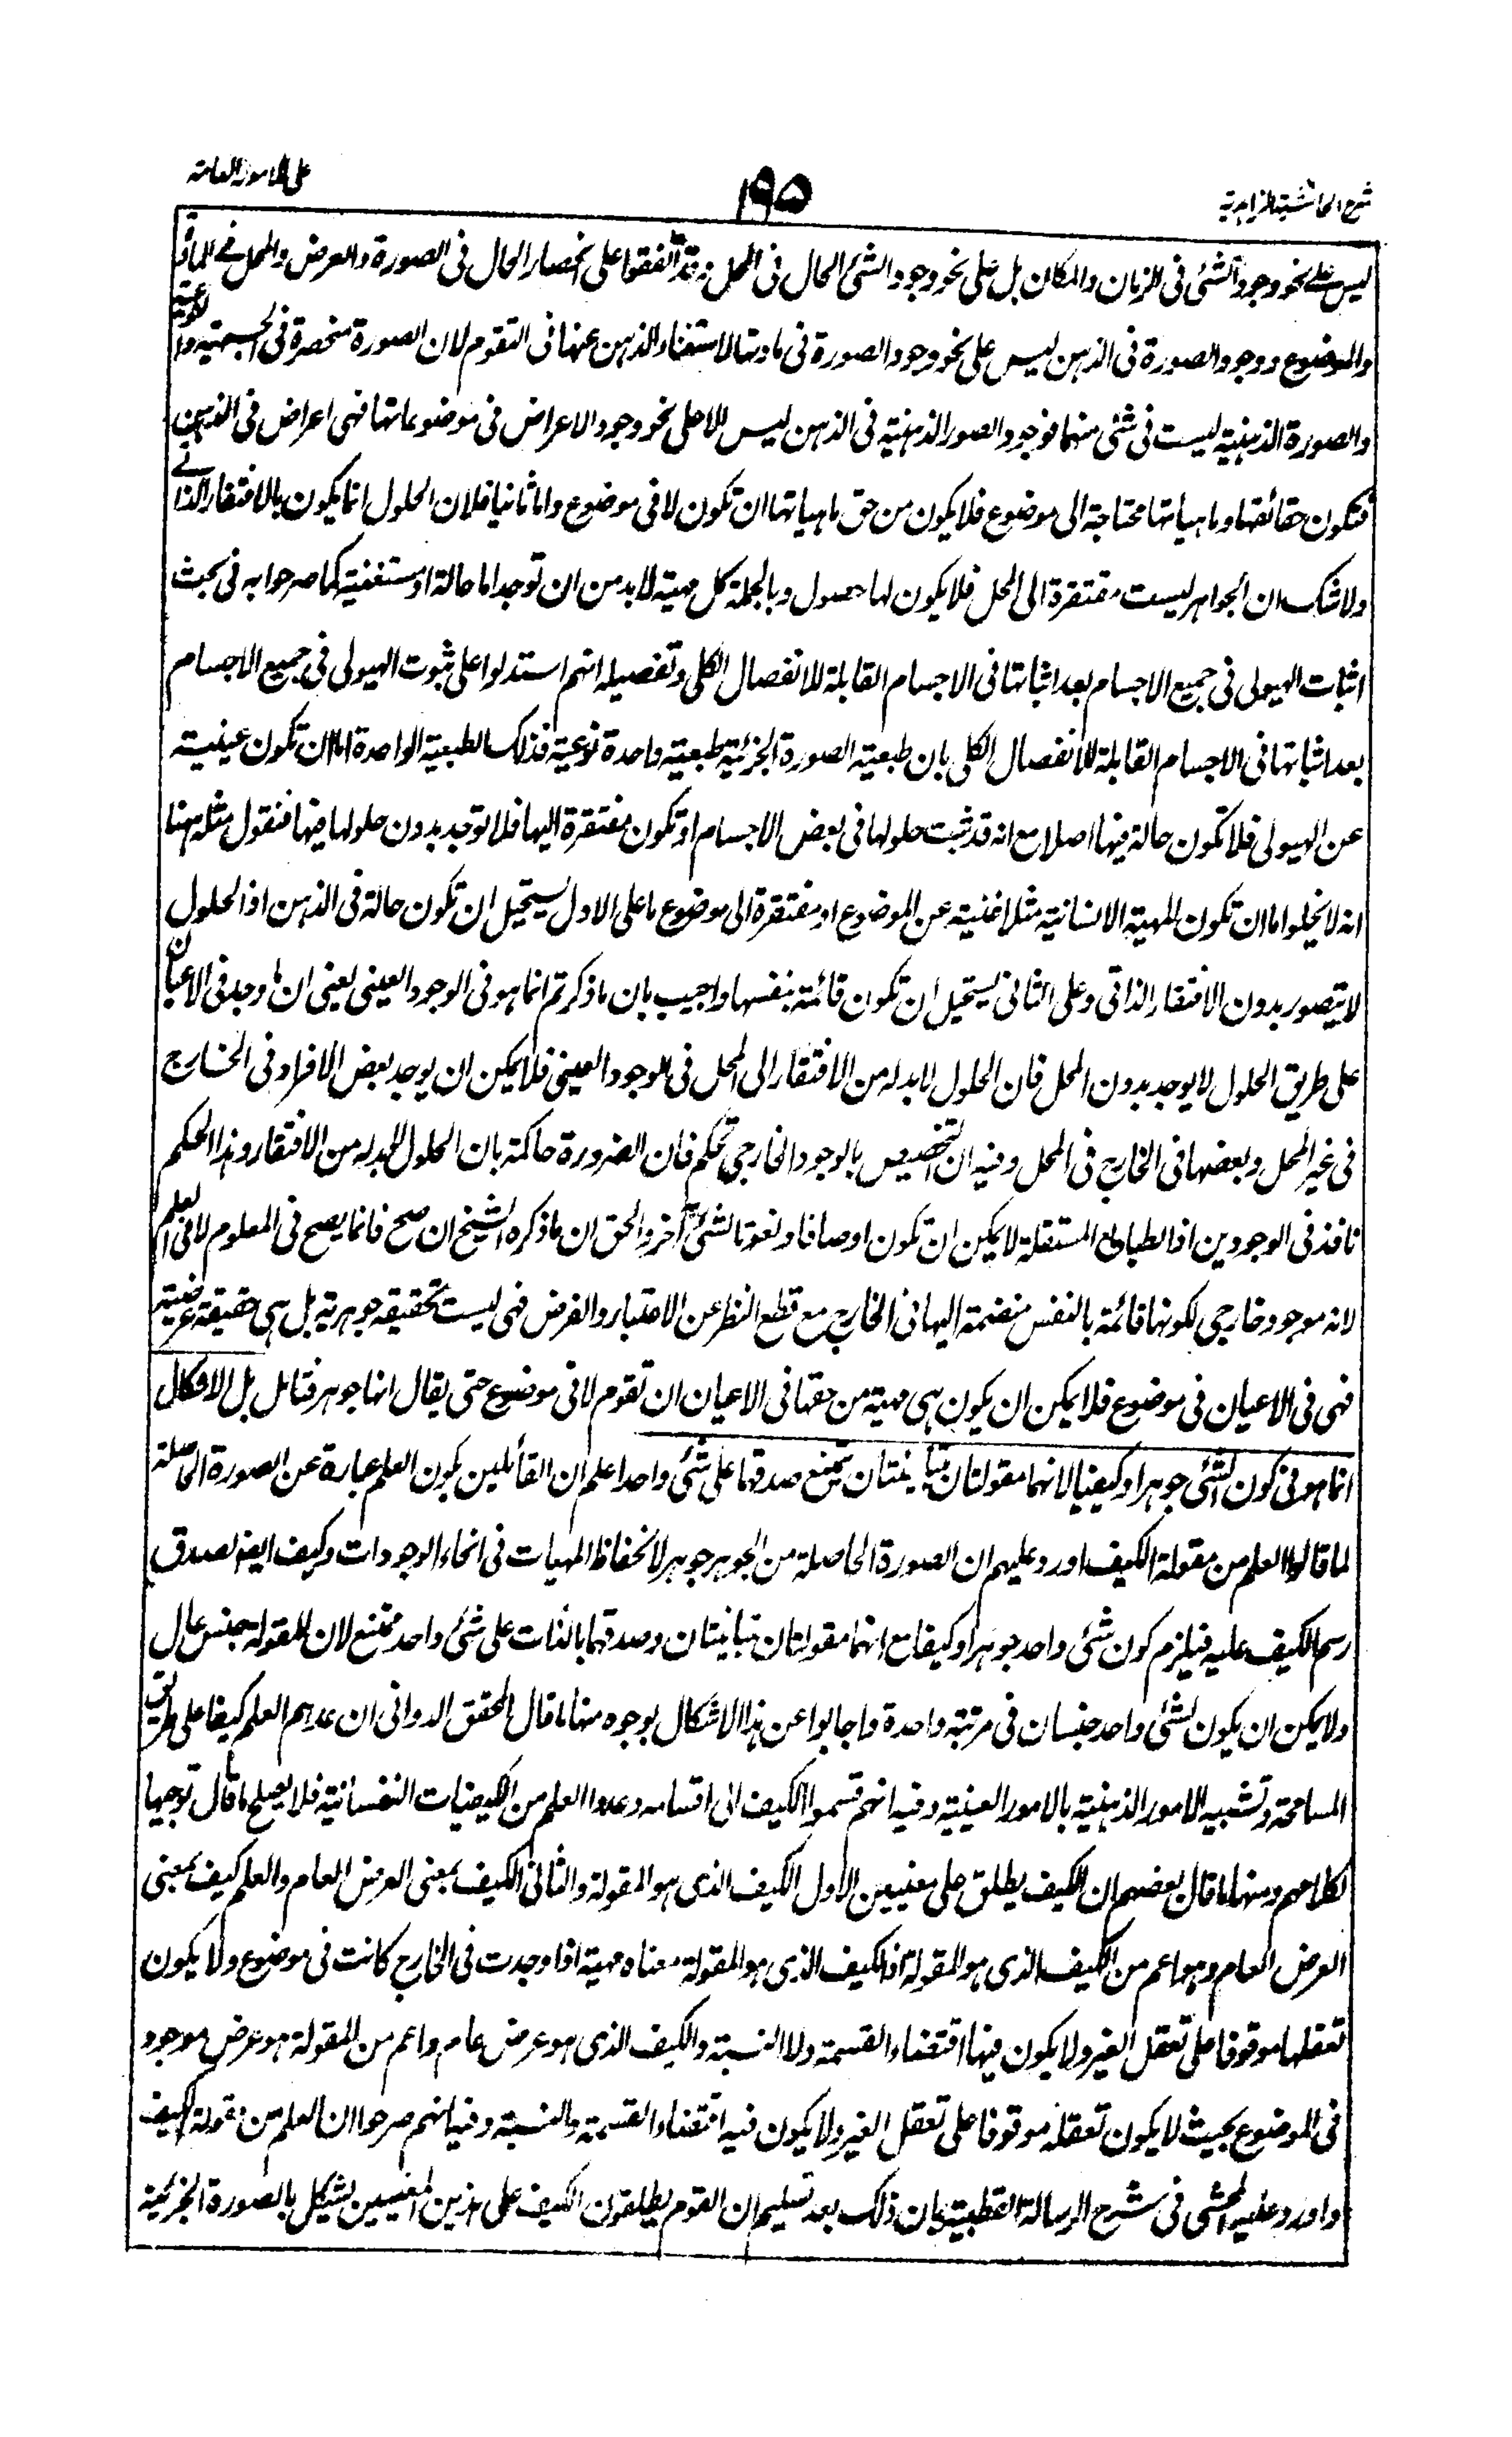 شرح الحاشية الزاهدية
۱۹۵
على الامور العامة
ليس على نحو وجود الشئ فى الزمان والمكان بل على نحو وجود الشئ الحال فى المحل وقد اتفقوا على انحصار الحال فى الصورة والعرض والمحل فى المادة
والموضوع ووجود الصورة فى الذهن ليس على نحو وجود الصورة فى مادتها لاستغناء الذهن عنها فى التقوم لان الصورة منحصرة فى الجسمية والنوعية
والصورة الذهنية ليست فى شئ منهما فوجود الصور الذهنية فى الذهن ليس الا على نحو وجود الاعراض فى موضوعاتها فهى اعراض فى الذهن
فتكون حقائقها وماهياتها محتاجة الى موضوع فلا يكون من حق ماهياتها ان تكون لا فى موضوع واما ثانيا فلان الحلول انما يكون بالافتقار الذاتى
ولا شك ان الجواهر ليست مفتقرة الى المحل فلا يكون لها حصول وبالجملة كل مهية لا بد من ان توجد اما حالة او مستغنية كما صرحوا به فى بحث
اثبات الهيولى فى جميع الاجسام بعد اثباتها فى الاجسام القابلة للانفصال الكلى وتفصيله انهم استدلوا على ثبوت الهيولى فى جميع الاجسام
بعد اثباتها فى الاجسام القابلة للانفصال الكلى بان طبعية الصورة الجزئية طبعية واحدة نوعية فذلك الطبعية الواحدة اما ان تكون غينية
عن الهيولى فلا تكون حالة فيها اصلا مع انه قد ثبت حلولها فى بعض الاجسام او تكون مفتقرة اليها فلا توجد بدون حلولها فيها فنقول مثله ههنا
انه لا يخلوا اما ان تكون المهية الانسانية مثلا غنية عن الموضوع او مفتقرة الى موضوع ما على الاول يستحيل ان تكون حالة فى الذهن اذ الحلول
لا يتصور بدون الافتقار الذاتى وعلى الثانى يستحيل ان تكون قائمة بنفسها واجيب بان ما ذكرتم انما هو فى الوجود العينى يعنى ان ما وجد فى الاعيان
على طريق الحلول لا يوجد بدون المحل فان الحلول لا بد له من الافتقار الى المحل فى الوجود العينى فلا يمكن ان يوجد بعض الافراد فى الخارج
فى غير المحل وبعضها فى الخارج فى المحل وفيه ان التخصيص بالوجود الخارجى تحكم فان الضرورة حاكمة بان الحلول لا بد له من الافتقار وهذا الحكم
نافذ فى الوجودين اذ الطبائع المستقلة لا يمكن ان تكون اوصافا ونعوتا لشئ آخر والحق ان ما ذكره الشيخ ان صح فانما يصح فى المعلوم لا فى العلم
لانه موجود خارجى لكونها قائمة بالنفس منضمة اليها فى الخارج مع قطع النظر عن الاعتبار والفرض فهى ليست حقيقة جوهرية بل هى حقيقة عرضية
فهى فى الاعيان فى موضوع فلا يمكن ان يكون هى مهية من حقها فى الاعيان ان تقوم لا فى موضوع حتى يقال انها جوهر فتامل بل الاشكال
انما هو فى كون الشئ جوهرا وكيفيا لانهما مقولتان متباينتان يمتنع صدقهما على شئ واحد اعلم ان القائلين بكون العلم عبارة عن الصورة الحاصلة
لما قالوا العلم من مقولة الكيف اورد عليهم ان الصورة الحاصلة من الجوهر جوهر لانحفاظ المهيات فى انحاء الوجودات وكيف ايضا لصدق
رسم الكيف عليه فيلزم كون شئ واحد جوهرا وكيفا مع انهما مقولتان متباينتان وصدقهما بالذات على شئ واحد ممتنع لان المقولة جنس عال
ولا يمكن ان يكون لشئ واحد جنسان فى مرتبة واحدة واجابوا عن هذا الاشكال بوجوه منها ما قال المحقق الدوانى ان عدهم العلم كيفا على طريق
المسامحة وتشبيه الامور الذهنية بالامور العينية وفيه انهم قسموا الكيف الى اقسامه وعدوا العلم من الكيفيات النفسانية فلا يصلح ما قال توجيها
لكلامهم ومنها ما قال بعضهم ان الكيف يطلق على معنيين الاول الكيف الذى هو المقولة والثانى الكيف بمعنى العرض العام والعلم كيف بمعنى
العرض العام وهو اعم من الكيف الذى هو المقولة اذ الكيف الذى هو المقولة معناه مهية اذا وجدت فى الخارج كانت فى موضوع ولا يكون
تعقلها موقوفا على تعقل الغير ولا يكون فيها اقتضاء القسمة ولا النسبة والكيف الذى هو عرض عام واعم من المقولة هو عرض موجود
فى الموضوع بحيث لا يكون تعقله موقوفا على تعقل الغير ولا يكون فيه اقتضاء القسمة والنسبة وفيه انهم صرحوا ان العلم من مقولة الكيف
واورد عليه المحشى فى شرح الرسالة القطبية بان ذلك بعد تسليم ان القوم يطلقون الكيف على هذين المعنيين يشكل بالصورة الجزئية